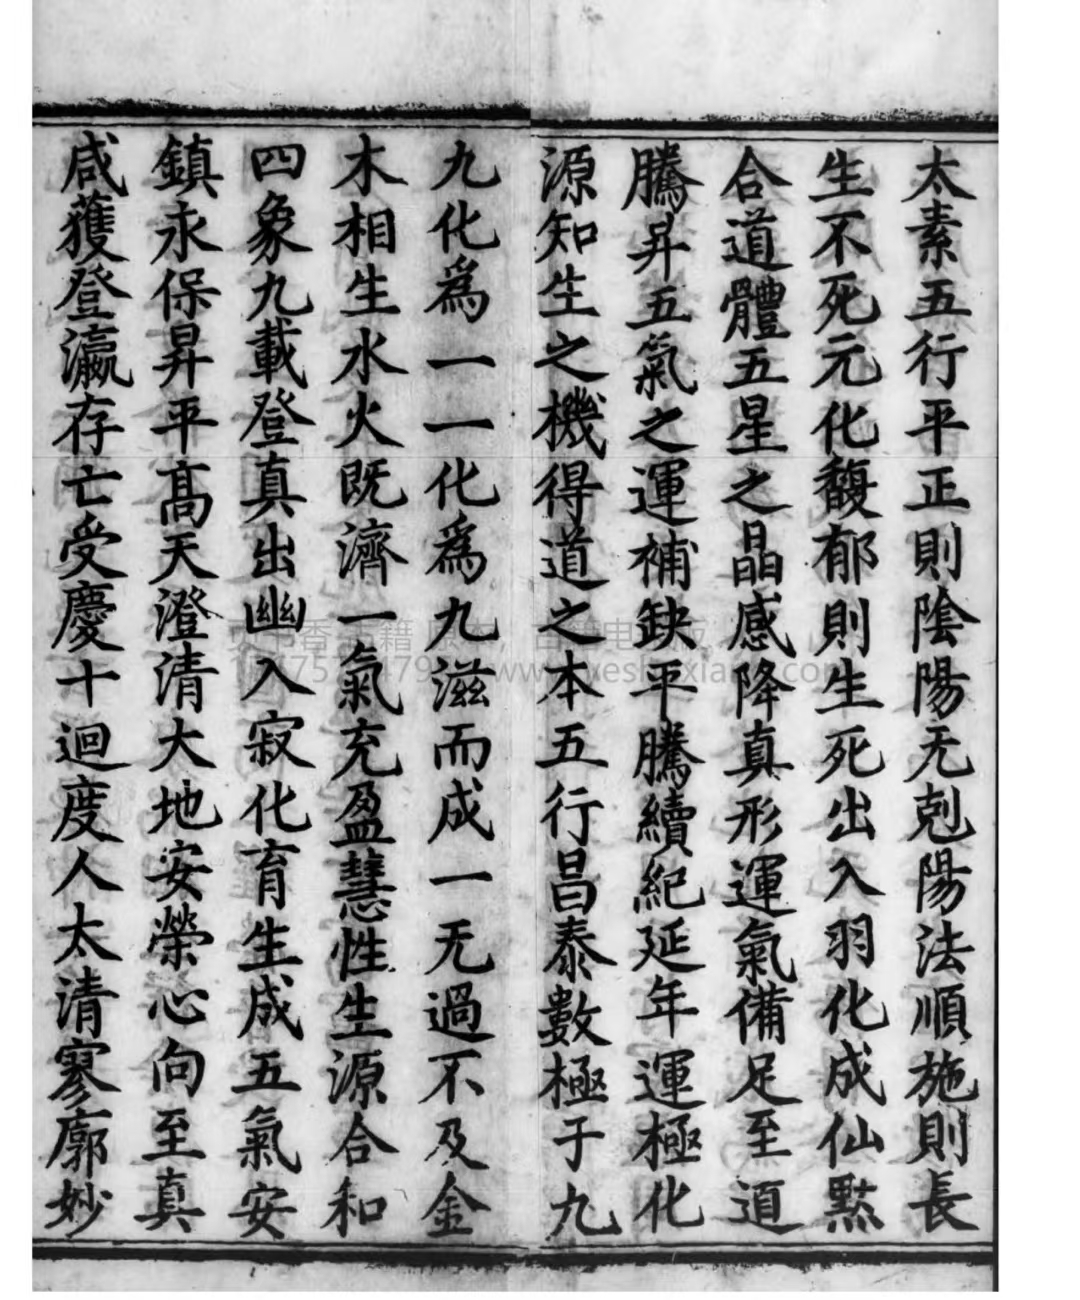 太素五行平正則陰陽无剋陽法順施則長
生不死元化馥郁則生死出入羽化成仙黙
合道體五星之晶感降真形運氣備足至道
騰昇五氣之運補缺平騰續紀延年運極化
源知生之機得道之本五行昌泰數極于九
九化爲一一化爲九滋而成一无過不及金
木相生水火既濟一氣充盈慧性生源合和
四象九載登真出幽入寂化育生成五氣安
鎮永保昇平高天澄清大地安榮心向至真
咸獲登瀛存亡受慶十迴度人太清寥廓妙